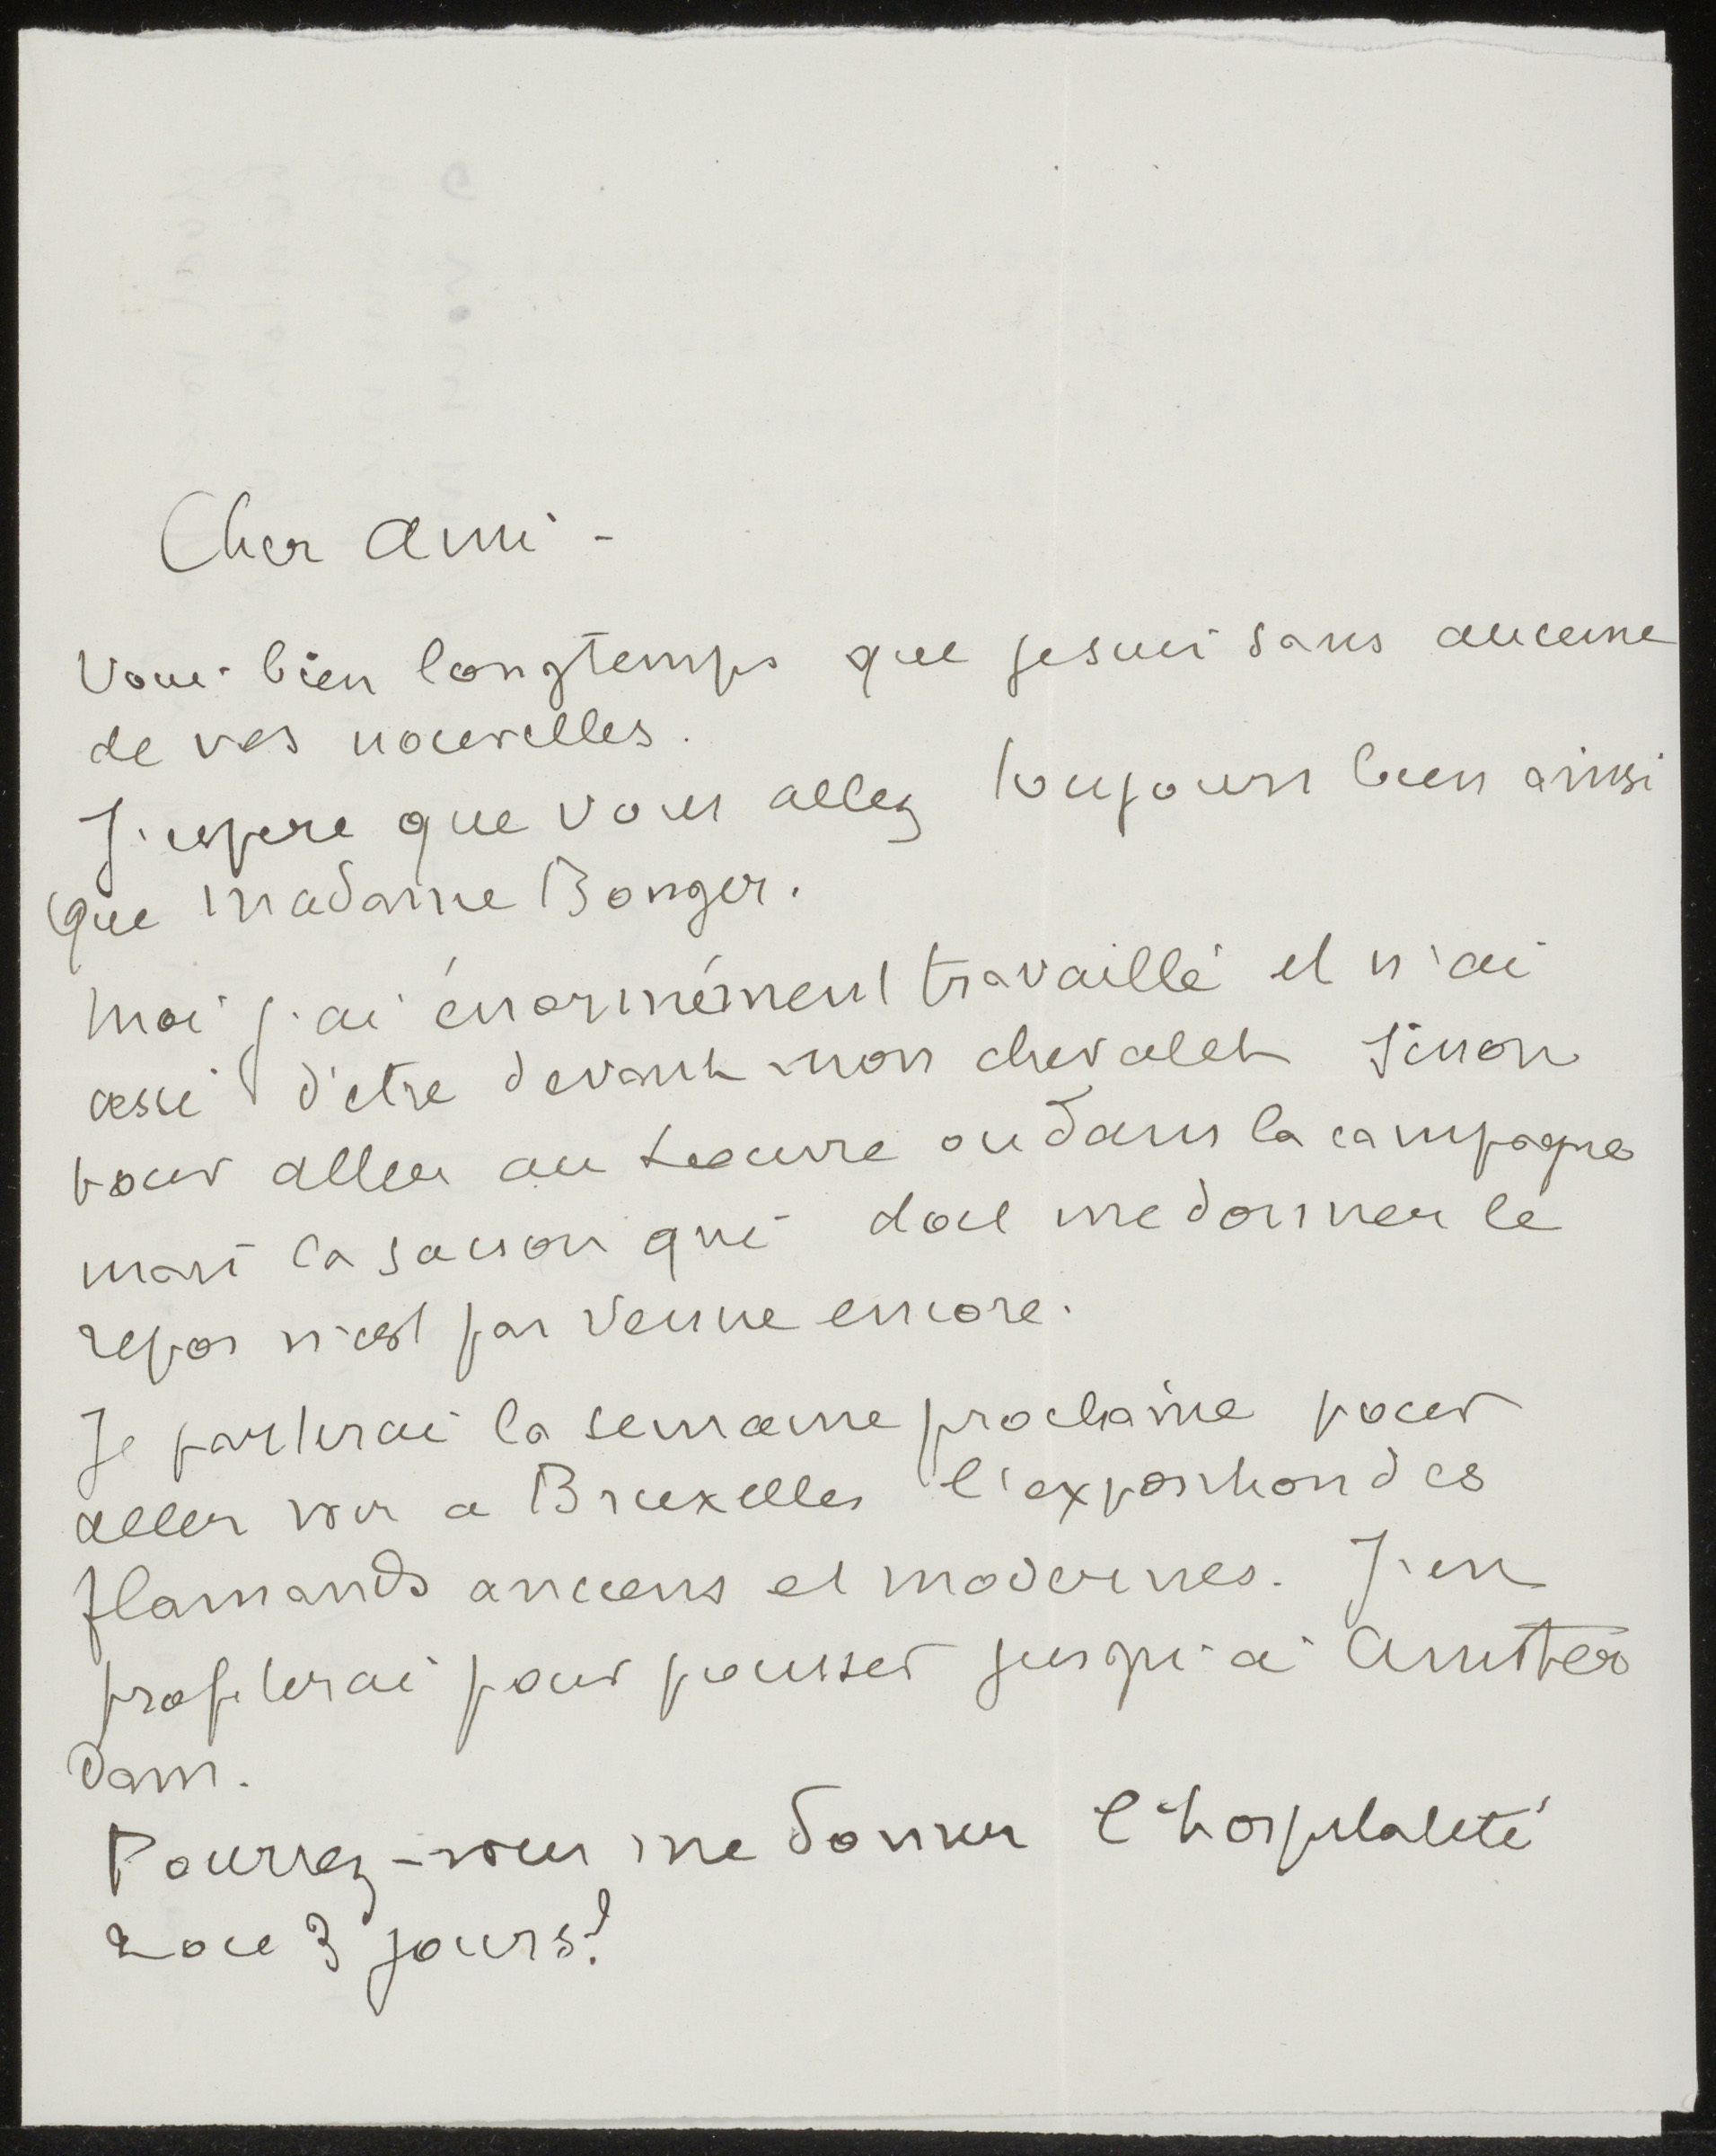 Cher ami -
Voici bien longtemps que je suis sans aucune
de vos nouvelles.
J'espere que vous allez toujours bien ainsi
que Madame Bonger.
Moi j'ai énormément travaillé et n'ai
cessé d'etre devant mon chevalet sinon
pour aller au Louvre ou dans la campagne
mais la saison qui doit me donner le
repos n'est pas venue encore.
Je partirai la semaine prochaine pour
aller voir a Bruxelles l'exposition des
flamands anciens et modernes. J'en
profiterai pour pousser jusqu'à Amster
dam.
Pourrez-vous me donner l'hospitalité
2 ou 3 jours?